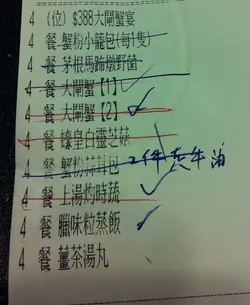 4 (位) $388大閘蟹宴
4 餐 蟹粉小籠包(每1隻)
4 餐 茅根馬蹄燉野菌
4 餐 大閘蟹【1】
4 餐 大閘蟹【2】
4 餐 蠔皇白靈芝菇
4 餐 蟹粉蒜茸包 2件 走牛油
4 餐 上湯灼時蔬
4 餐 臘味粒蒸飯
4 餐 薑茶湯丸